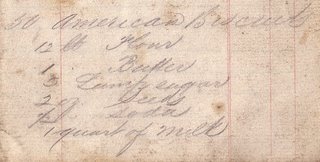 50 American Biscuits
12 lb Flour
1 " Butter
3 " Lump sugar
2 oz Seeds
Soda
1 quart of Milk